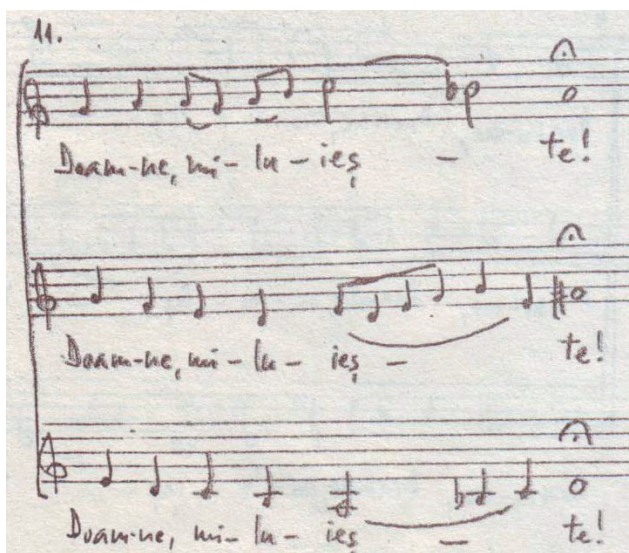 11.
Doam-ne, mi-lu-ieș - te!
Doam-ne, mi-lu-ieș - te!
Doam-ne, mi-lu-ieș - te!